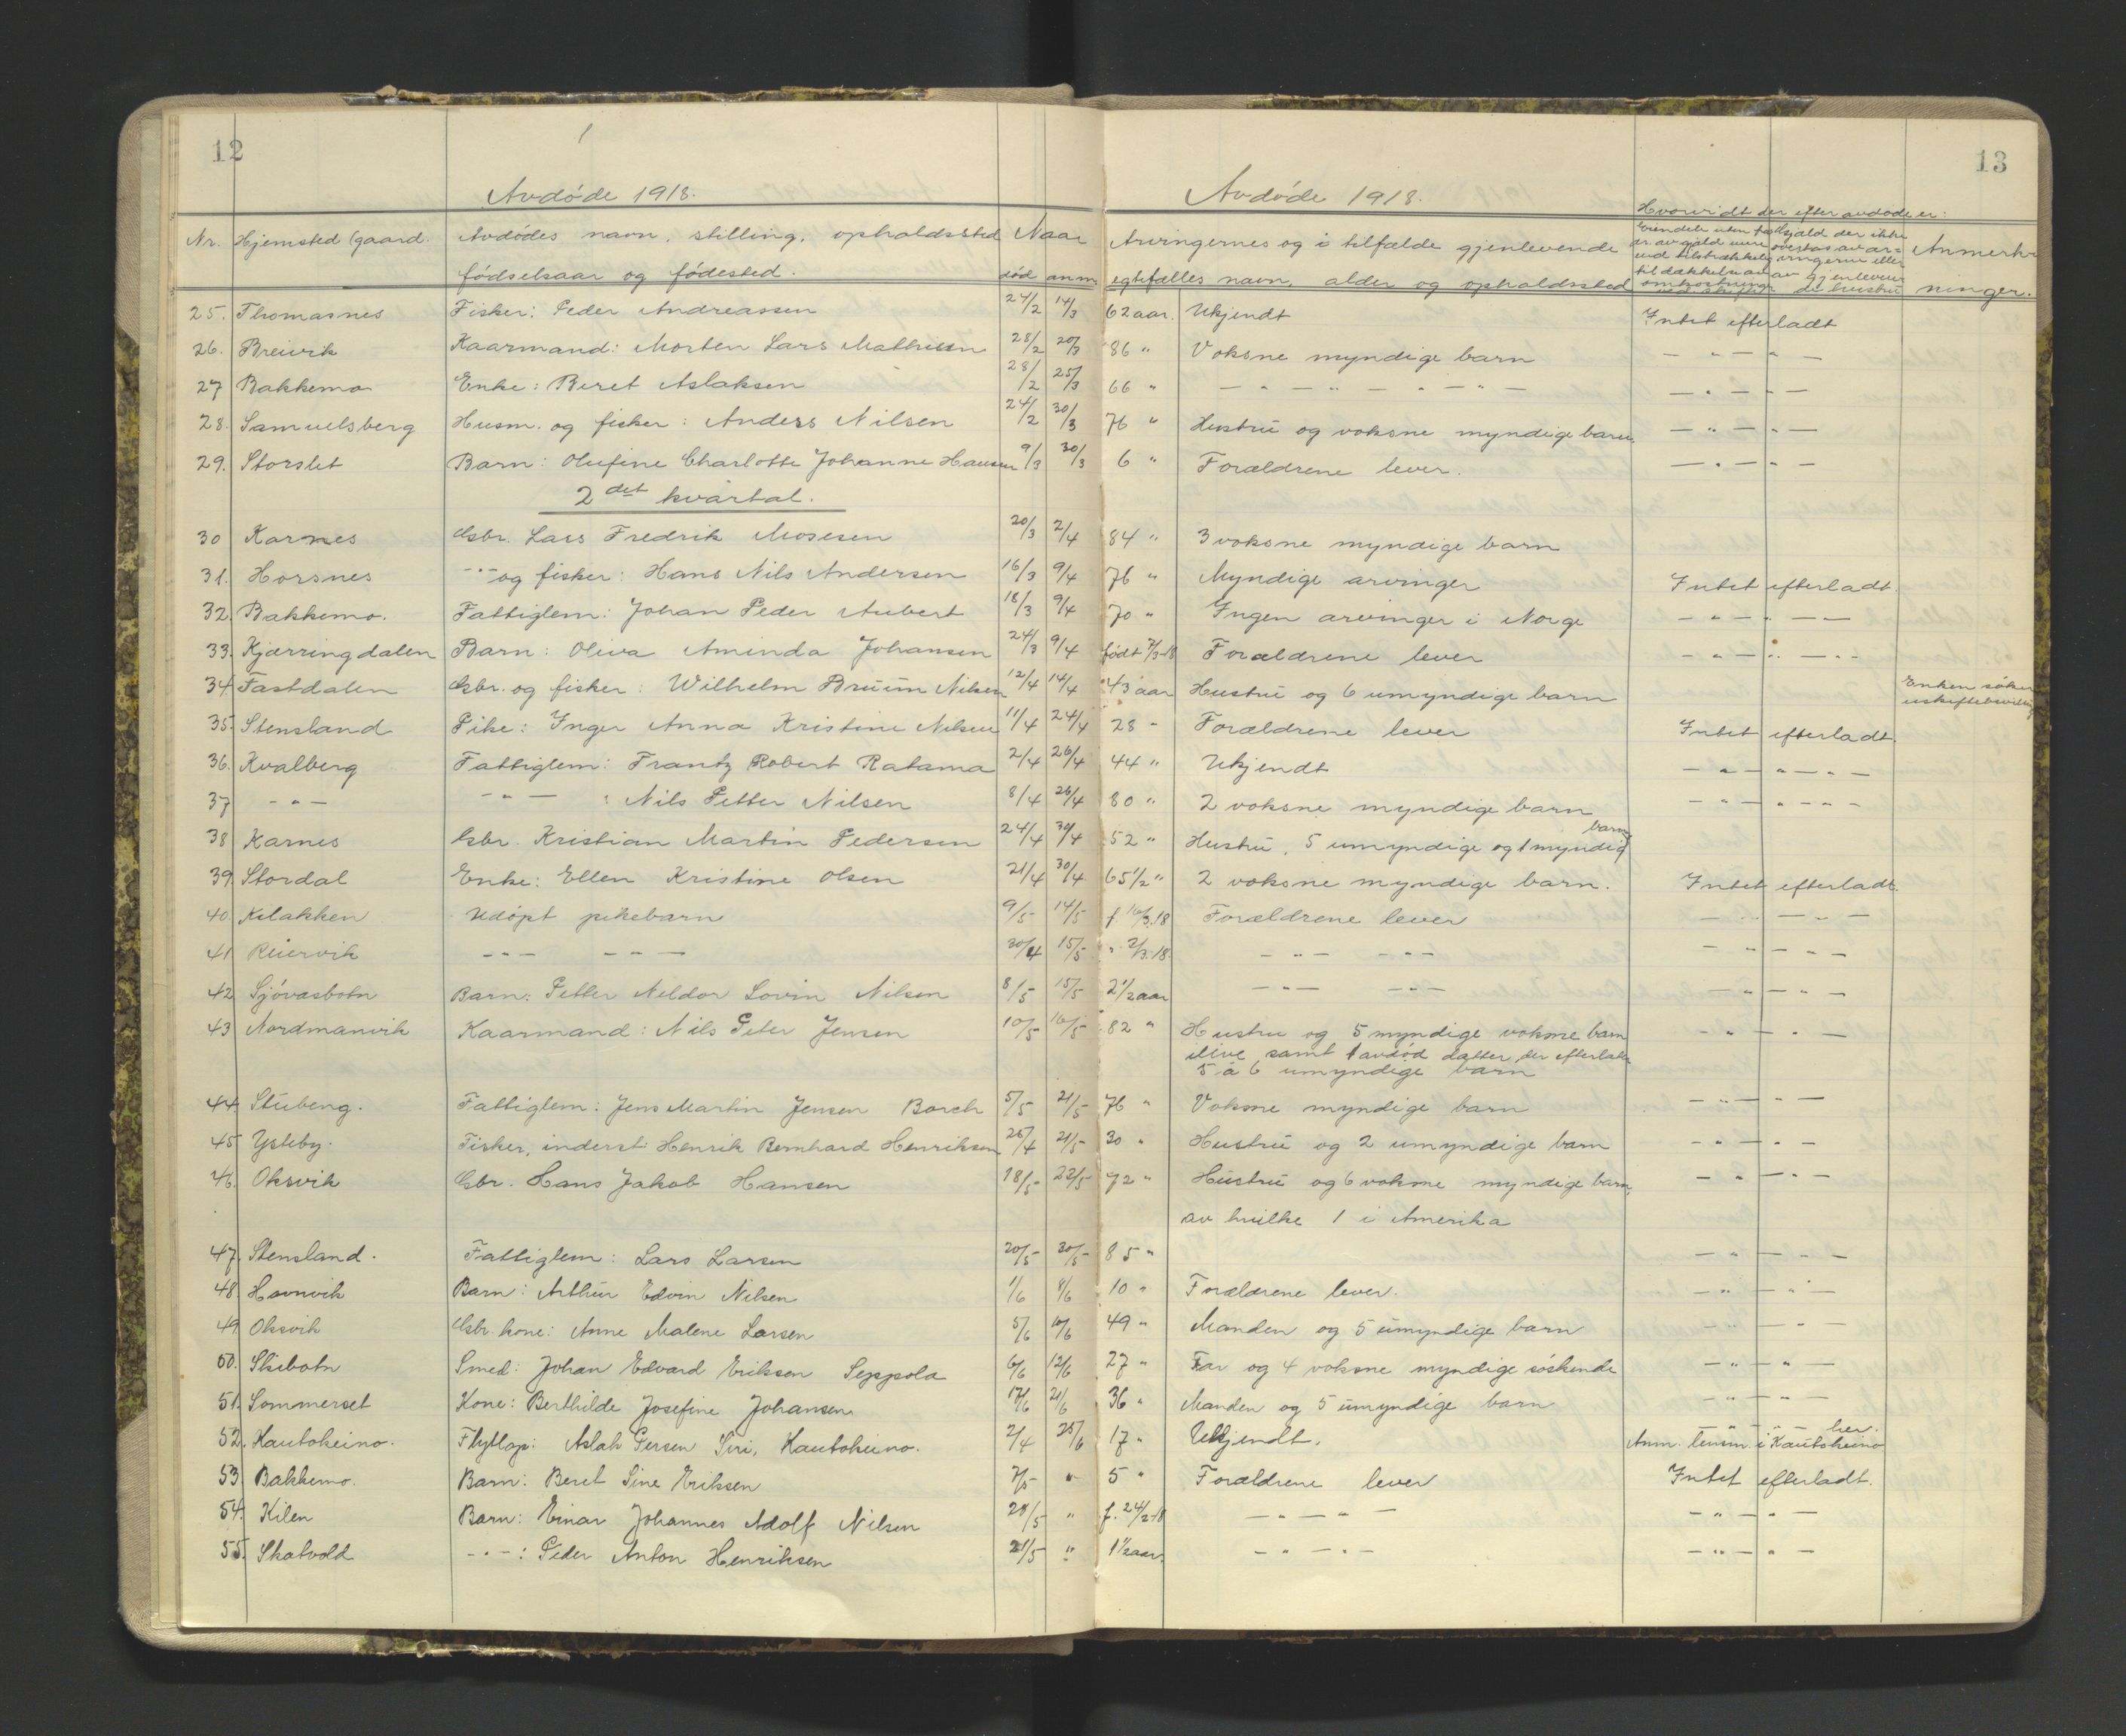 12
Avdøde 1918.
Nr. Hjemsted (gaard. Avdødes navn, stilling, opholdssted Naar
fødselsaar og fødested. død anm.
25. Thomasnes Fisker: Peder Andreassen 24/2 14/3
26. Breivik Kaarmand: Morten Lars Mathisen 28/2 20/3
27 Bakkemo Enke: Beret Aslaksen 28/2 25/3
28. Samuelsberg Husm. og fisker: Anders Nilsen 24/2 30/3
29. Storslet Barn: Olufine Charlotte Johanne Hansen 9/3 30/3
2det kvartal.
30 Karnes Gsbr. Lars Fredrik Mosesen 20/3 2/4
31. Horsnes -"- og fisker: Hans Nils Andersen 16/3 9/4
32. Bakkemo. Fattiglem: Johan Peder Aubert 18/3 9/4
33. Kjærringdalen Barn: Oliva Aminda Johansen 24/3 9/4
34 Fastdalen Gsbr. og fisker: Wilhelm Bruun Nilsen 12/4 14/4
35. Stensland Pike: Inger Anna Kristine Nilsen 11/4 24/4
36. Kvalberg Fattiglem: Frantz Robert Ratama 2/4 26/4
37 -"- -"- : Nils Petter Nilsen 8/4 26/4
38 Karnes Gsbr. Kristian Martin Pedersen 24/4 30/4
39. Stordal Enke: Ellen Kristine Olsen 21/4 30/4
40. Kilakken Udøpt pikebarn 9/5 14/5
41 Reiervik -"- -"- 30/4 15/5
42 Sjøvasbotn Barn: Petter Neldor Lovin Nilsen 8/5 15/5
43 Nordmanvik Kaarmand: Nils Peter Jensen 10/5 16/5
44. Stubeng. Fattiglem: Jens Martin Jensen Borch 5/5 21/5
45 Ysteby. Fisker, inderst: Henrik Bernhard Henriksen 26/4 21/5
46. Oksvik Gsbr. Hans Jakob Hansen 18/5 23/5
47. Stensland. Fattiglem: Lars Larsen 20/5 30/5
48. Havnvik Barn: Arthur Edvin Nilsen 1/6 8/6
49 Oksvik Gsbr. kone: Anne Malene Larsen 5/6 10/6
50. Skibotn Smed: Johan Edvard Eriksen Seppola 6/6 12/6
51. Sommerset Kone: Berthilde Josefine Johansen 17/6 21/6
52. Kautokeino. Flytlap: Aslak Persen Siri, Kautokeino. 2/4 25/6
53. Bakkemo. Barn: Beret Sine Eriksen 7/5 "
54. Kilen Barn: Einar Johannes Adolf Nilsen 28/5 "
55. Skatvold -"-: Peder Anton Henriksen 21/5 "
13
Avdøde 1918.
Hvorvidt der efter avdøde er:
Arvingernes og i tilfælde gjenlevende Anmerk-
egtefælles navn, alder og opholdssted ninger.
62 aar. Ukjendt Intet efterladt
86 " Voksne myndige barn -"-"-
66 " -"-"-"- -"-"-
76 " Hustru og voksne myndige barn -"-"-
6 " Forældrene lever. -"-"-
84 " 3 voksne myndige barn
76 " Myndige arvinger Intet efterladt.
70 " Ingen arvinger i Norge -"-"-
født 7/3-18 Forældrene lever -"-"-
43 aar Hustru og 6 umyndige barn Enken søker
uskiftebevilling
28 - Forældrene lever Intet efterladt.
44 " Ukjendt -"-"-
80 " 2 voksne myndige barn -"-"-
52 " Hustru, 5 umyndige og 1 myndig barn
65 1/2 " 2 voksne myndige barn. Intet efterladt.
f 16/3.18 Forældrene lever -"-"-
" 2/3.18. -"- -"- -"-"-
2 1/2 aar -"- -"- -"-"-
82 " Hustru og 5 myndige voksne barn -"-"-
ilive samt 1 avdød datter der efterlater
5 à 6 umyndige barn
76 " Voksne myndige barn -"-"-
30 " Hustru og 2 umyndige barn -"-"-
72 " Hustru og 6 voksne myndige barn, -"-"-
av hvilke 1 i Amerika
85 " -"-"-
10 " Forældrene lever. -"-"-
49 " Manden og 5 umyndige barn -"-"-
27 " Far og 4 voksne myndige søskende -"-"-
36 " Manden og 5 umyndige barn -"-"-
17 " Ukjendt. Anm. lensm. i Kautokeino
5 " Forældrene lever Intet efterladt.
f. 24/2-18 -"-"- -"-"-
1 1/2 aar. -"-"- -"-"-